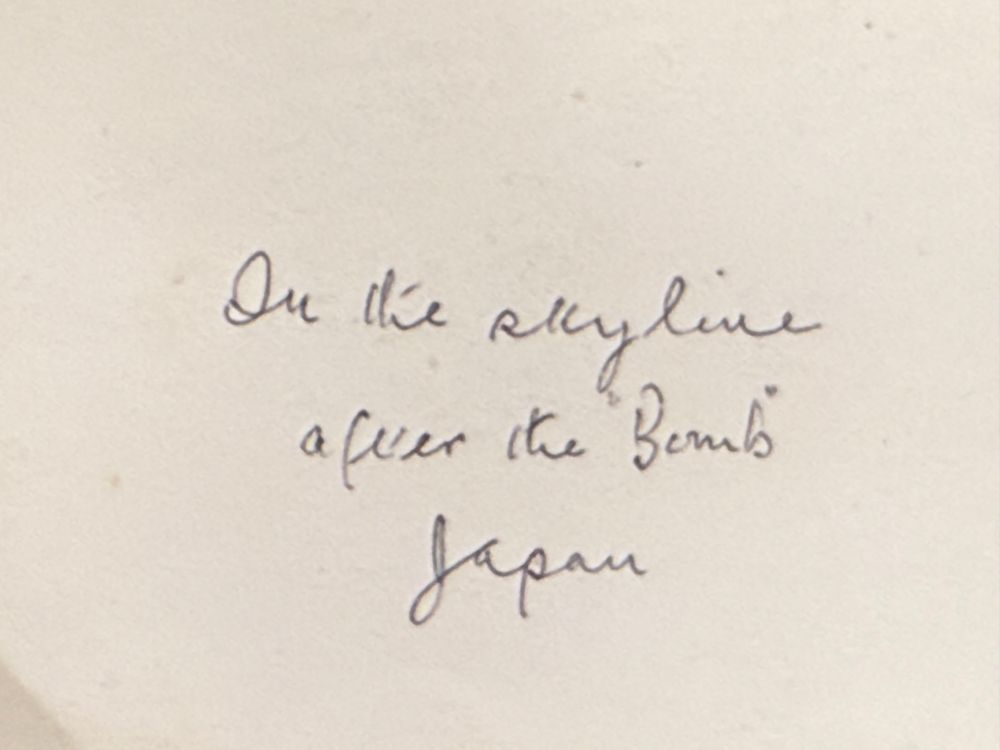 In the skyline
after the "Bomb"
Japan